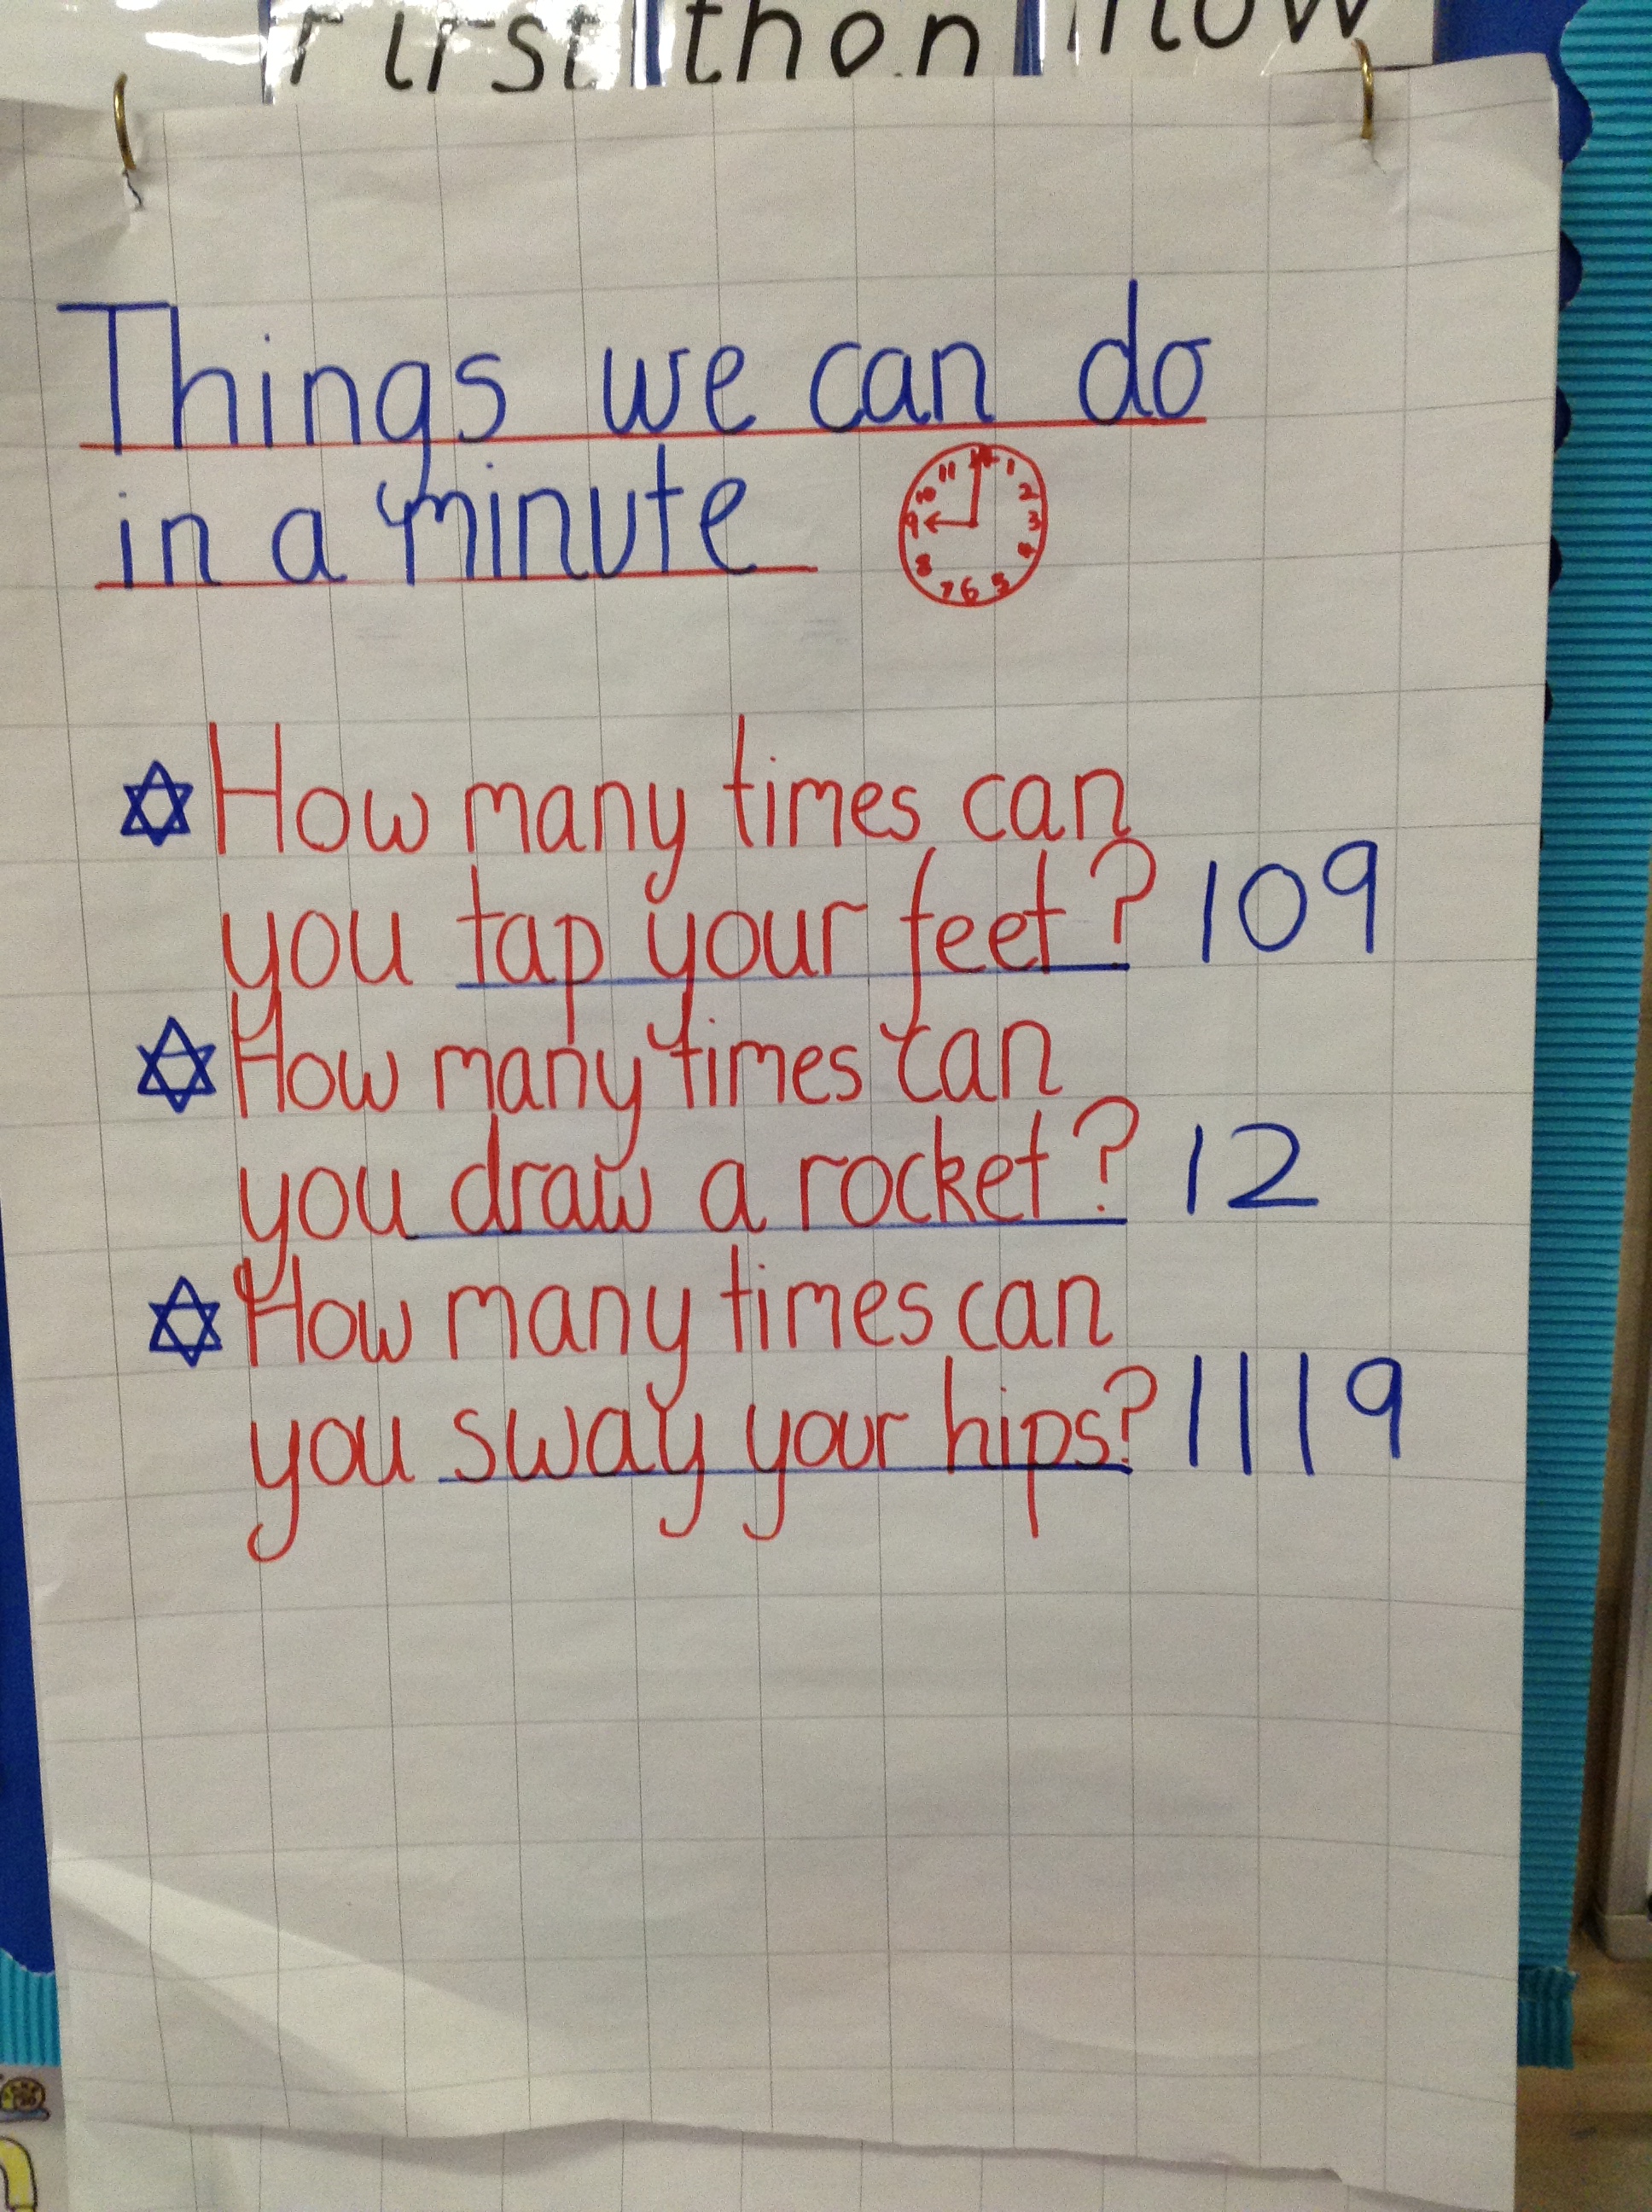 First then now
Things we can do
in a minute
11 12 1
10 2
9 3
8 4
7 6 5
How many times can
you tap your feet? 109
How many times can
you draw a rocket? 12
How many times can
you sway your hips? 1119